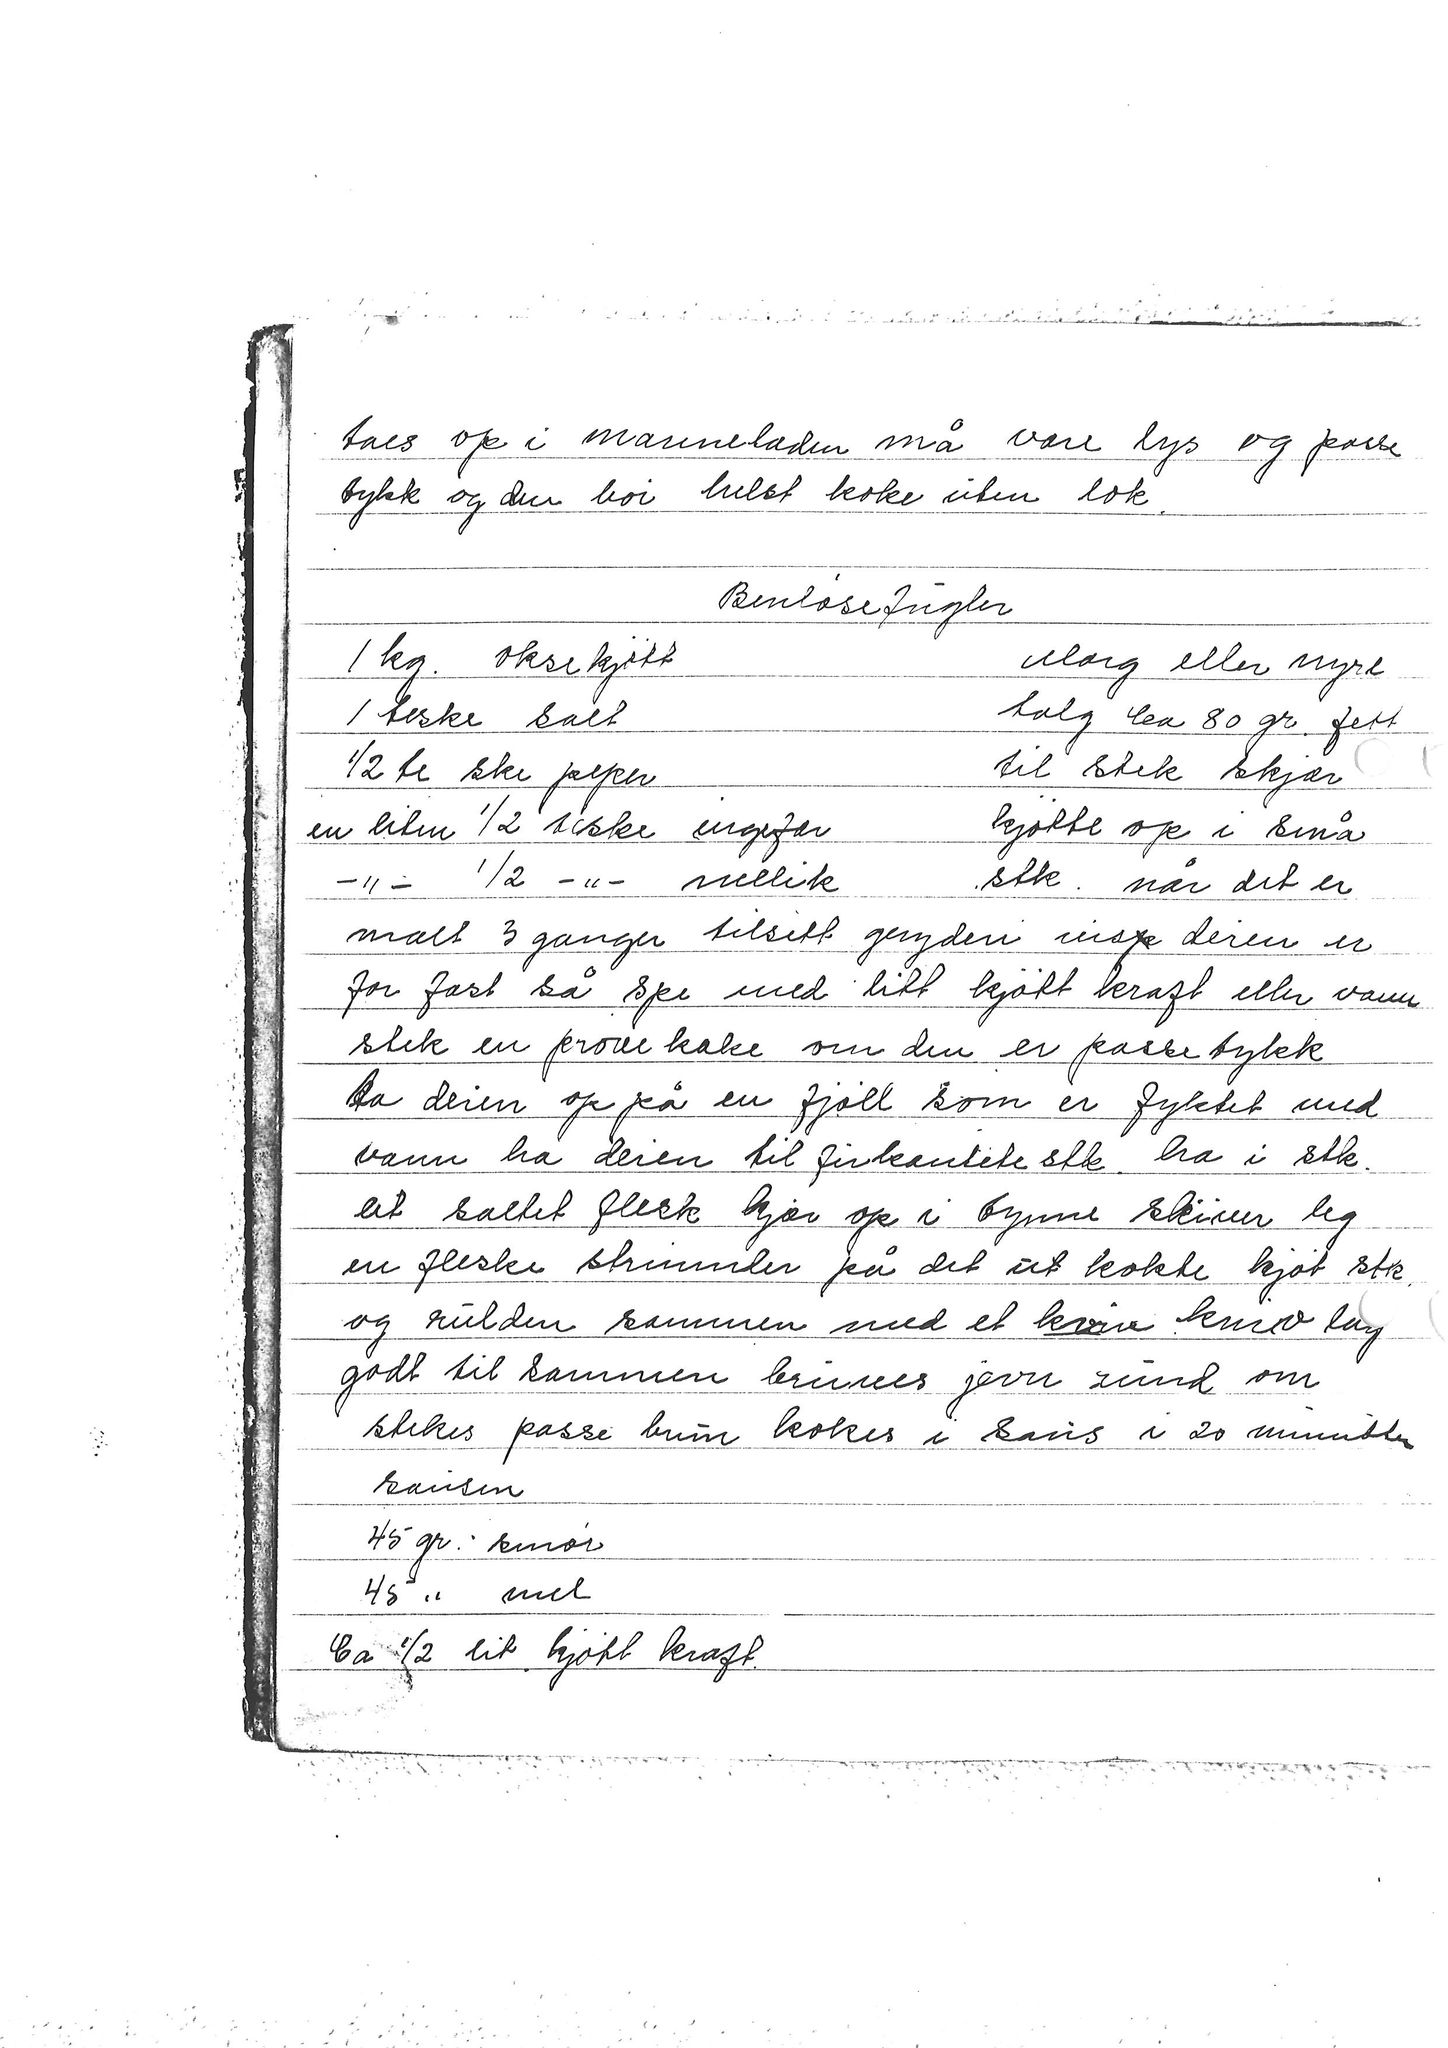 taes op i marmeladen må være lys og passe
tykk og den bör helst koke uten lok.
Benlöse fugler
1 kg. oksekjött
1 teske salt
1/2 te ske peper
en liten 1/2 teske ingefær
-"- 1/2 -"- nellik
Marg eller nyre
talg Ca 80 gr. fett
til stek skjær
kjötte op i små
stk. når det er
malt 3 ganger tilsett deren er
for fast så spe med litt kjött kraft eller vann
stek en pröve kake om den er passe tykk
ta deien op på en fjöll som er fyktet med
vann ha deien til firkantete stk. ha i stk.
et saltet flesk kjær op i tynne skiver leg
en fleske strimmler på det ut kokte kjöt stk.
og rulden sammen med et kniv lag
godt til sammen brunes jevn rund om
stekes passe brun kokes i saus i 20 minutter
sausen
45 gr. smör
45 " mel
Ca 1/2 lit kjött kraft.